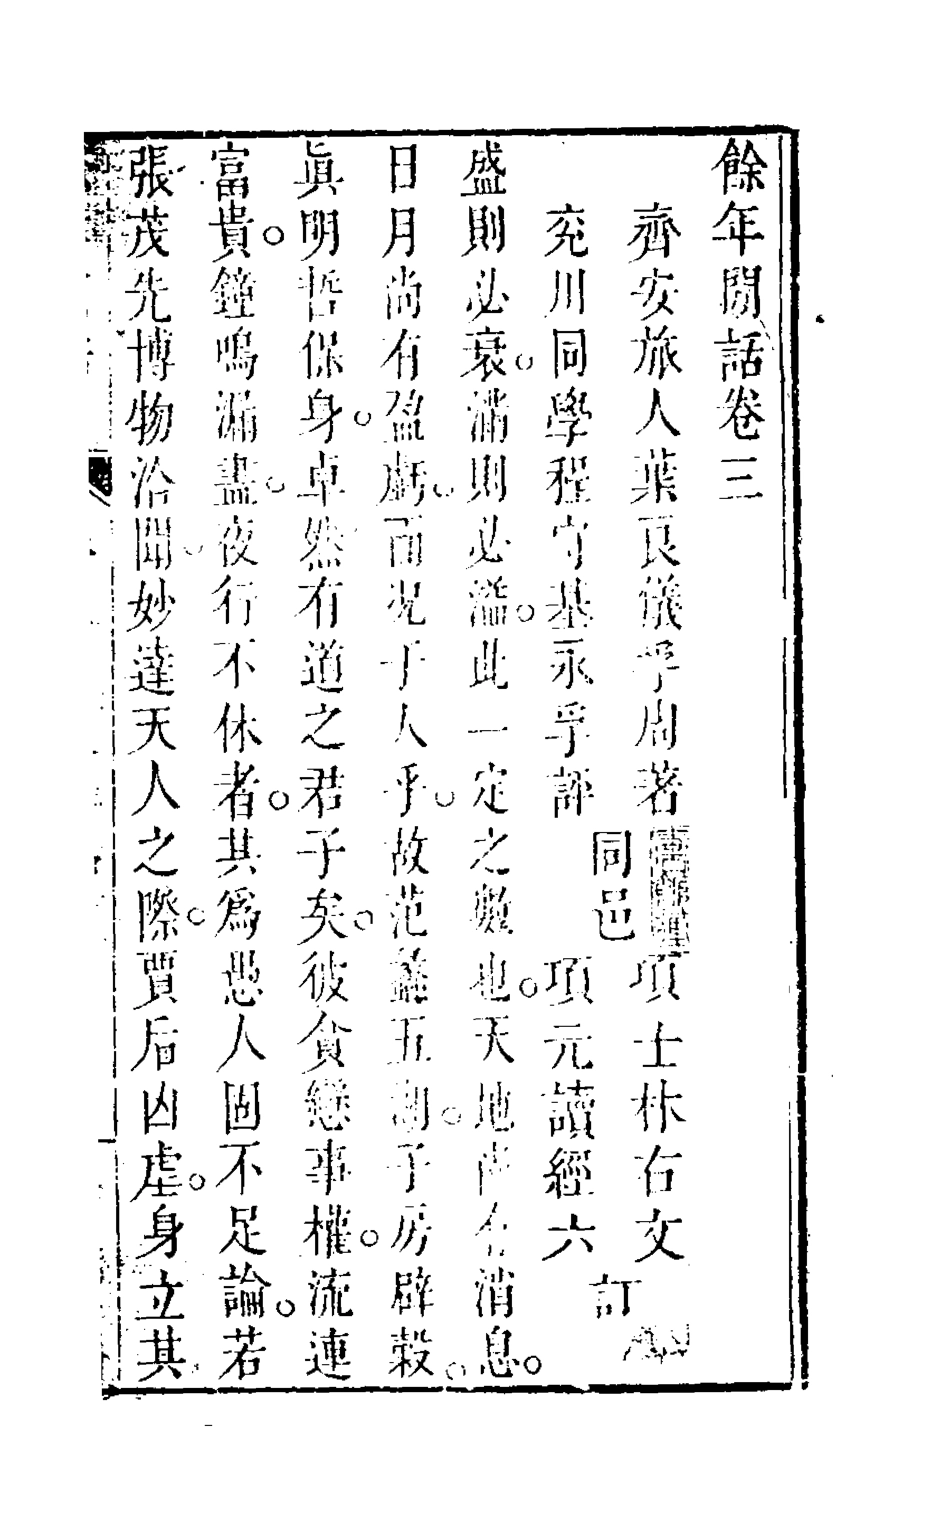 餘年閒話卷三
齊安旅人葉良儀孚周著
同邑
項士林右文
兖川同學程守基永孚評
項元讀經六
訂
盛則必衰。滿則必溢。此一定之數也。天地尚有消息。
日月尚有盈虧。而况于人乎。故范蠡五湖。子房辟榖。
眞明哲保身。卓然有道之君子矣。彼貪戀事權。流連
富貴。鐘鳴漏盡。夜行不休者。其爲愚人固不足論。若
張茂先博物洽聞。妙達天人之際。賈后凶虐。身立其